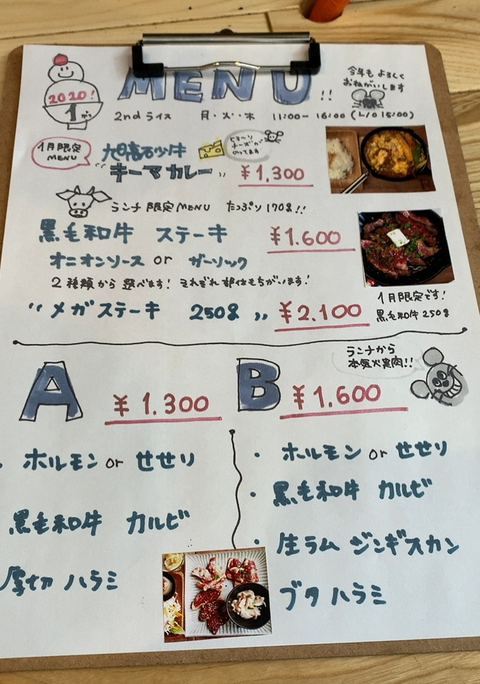 MENU!!
今年もよろしく
おねがいします
2020!
1
2ndライス 月・火・木 11:00~16:00 (L/O 15:00)
1月限定
MENU
"キーマカレー" ¥1,300
ランチ限定MENU たっぷり170g!!
黒毛和牛 ステーキ ¥1.600
オニオンソース or ガーリック
2種類から選べます! それぞれ
"メガステーキ 250g" ¥2.100
1月限定です!
黒毛和牛250g
ランチから
本気火黒肉!!
A ¥1.300
・ホルモン or せせり
黒毛和牛 カルビ
厚切 ハラミ
B ¥1.600
・ホルモン or せせり
・黒毛和牛 カルビ
・生ラム ジンギスカン
ブタ ハラミ